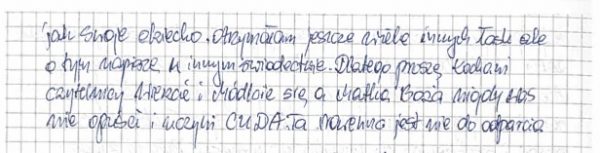 jak swoje dziecko. otrzymałam jeszcze wiele innych łask ale
o tym napiszę w innym świadectwie. Dlatego proszę kochani
czytelnicy wierzcie i módlcie się a Matka Boża nigdy was
nie opuści i uczyni CUDA. Ta nowenna jest nie do odparcia